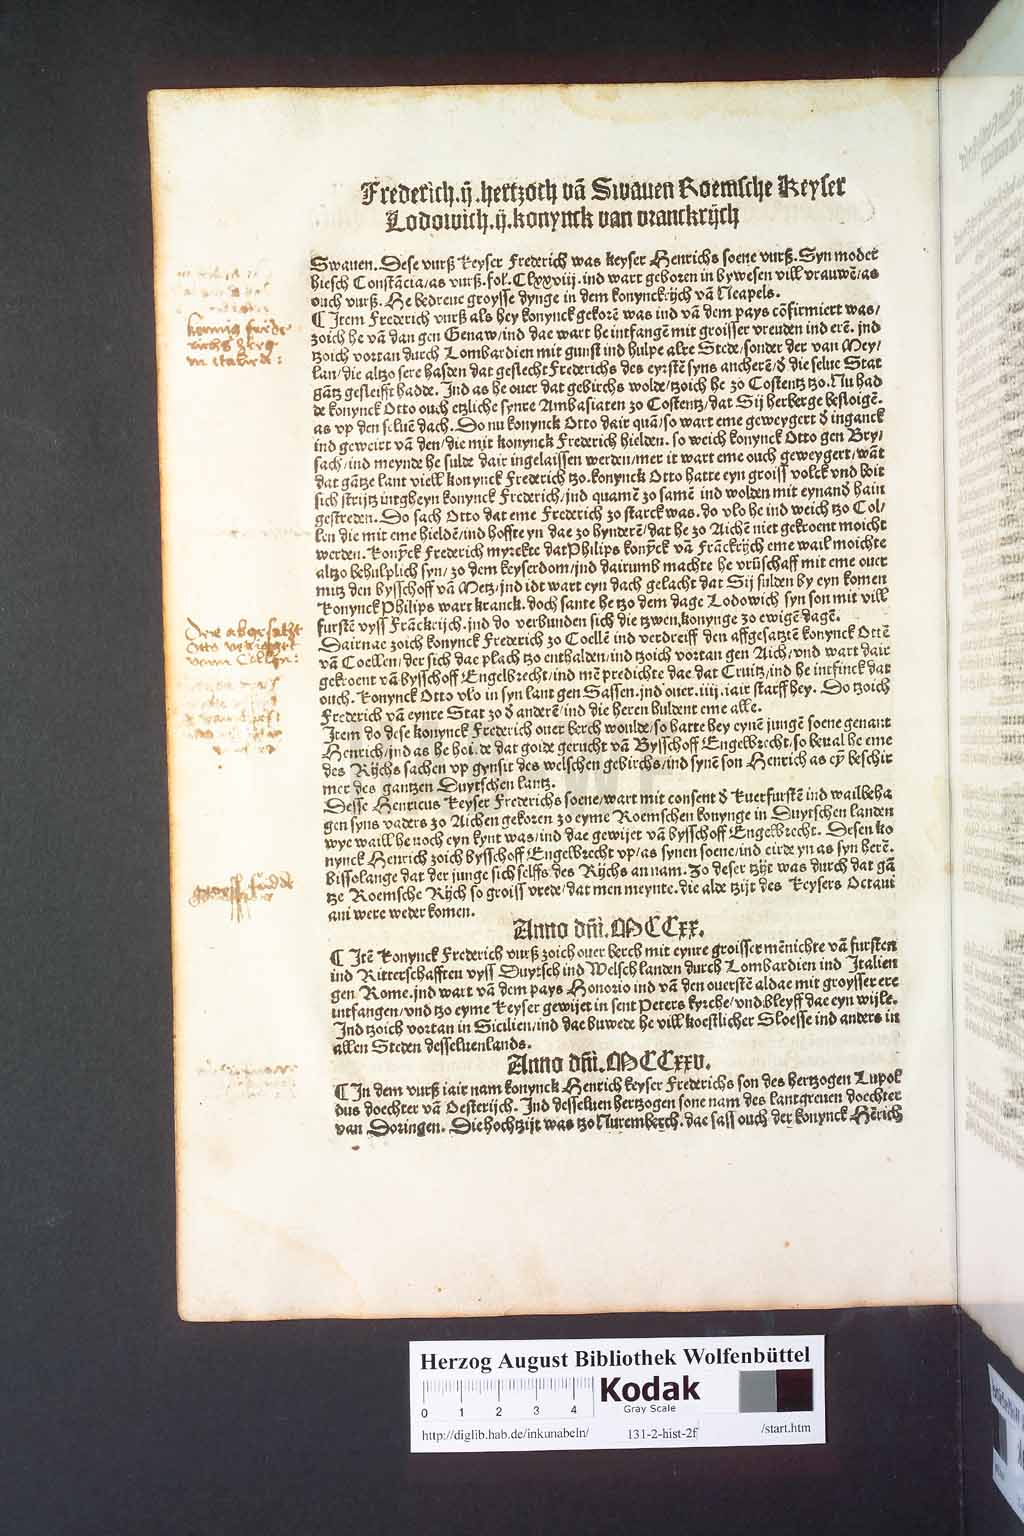 Frederich.ij.hertzoch vā Swauen Roemsche Keyser
Lodowich.ij.konynck van vranckrijch
Swauen. Dese vurß keyser Frederich was keyser Henrichs soene vurß. Syn moder
hiesch Constācia/as vurß.fol. Clxxviij. ind wart geboren in bywesen vill vrauwē/as
ouch vurß. He bedreue groysse dynge in dem konynckrijch vā Neapels.
¶ Item Frederich vurß als hey konynck gekorē was ind vā dem pays cōfirmiert was/
zoich he vā dan gen Genaw/ind dae wart he intfangē mit groisser vreuden ind erē. jnd
tzoich vortan durch Lombardien mit gunst ind hulpe alre Stede/sonder der van Mey/
lan/die altzo sere haſden dat geslecht Frederichs des eyrstē syns ancherē/d die selue Stat
gātz gesleifft hadde. Ind as he ouer dat gebirchs wolde/tzoich he zo Costentz tzo. Nu had
de konynck Otto ouch etzliche synre Ambasiaten zo Costentz/dat Sij herberge besloigē.
as vp den seluē dach. Do nu konynck Otto dair quā/so wart eme geweygert d inganck
ind geweirt vā den/die mit konynck Frederich hielden. so weich konynck Otto gen Bry/
sach/ind meynde he sulde dair ingelaissen werden/mer it wart eme ouch geweygert/wāt
dat gātze lant viell konynck Frederich tzo. konynck Otto hatte eyn groiss volck vnd boit
sich strijtz intgheyn konynck Frederich/jnd quamē zo samē ind wolden mit eynand hain
gestreden. Do sach Otto dat eme Frederich zo starck was. do vlo he ind weich tzo Col/
len die mit eme hieldē/ind hoffte yn dae zo hynderē/dat he zo Aichē niet gekroent moicht
werden. Konyck Frederich myrckte dat Philips konyck vā Frāckrijch eme wail moichte
altzo behulplich syn/zo dem keyserdom/jnd dairumb machte he vrūtschaff mit eme ouer
mitz den bysschoff vā Metz/jnd idt wart eyn dach gelacht dat Sij sulden by eyn komen
Konynck Philips wart kranck. doch sante he tzo dem dage Lodowich syn son mit vill
furstē vyss Frāckrijch. jnd do verbunden sich die tzwen konynge zo ewigē dagē.
Dairnae zoich konynck Frederich zo Coellē ind verdreiff den affgesatztē konynck Ottē
vā Coellen/der sich dae plach tzo enthalden/ind tzoich vortan gen Aich/vnd wart dair
gekroent vā bysschoff Engelbrecht/ind mē predichte dae dat Cruitz/ind he intfinck dat
ouch. Konynck Otto vlo in syn lant gen Sassen. jnd ouer.iiij.iair starff hey. Do tzoich
Frederich vā eynre Stat zo d anderē/ind die heren huldent eme alle.
Item do dese konynck Frederich ouer berch woulde/so hatte hey eynē jungē soene genant
Henrich/jnd as he hoirde dat goide gerucht vā Bysschoff Engelbrecht. so beual he eme
des Rijchs sachen vp gynsit des welschen gebirchs/ind synē son Henrich as ey beschir
mer des gantzen Duytschen lantz.
Desse Henricus Keyser Frederichs soene/wart mit consent d Kuerfurstē ind wailbeha
gen syns vaders zo Aichen gekoren zo eyme Roemschen konynge in Duytschen landen
wye waill he noch eyn kynt was/ind dae gewijet vā bysschoff Engelbrecht. Desen ko
nynck Henrich zoich bysschoff Engelbrecht vp/as synen soene/ind eirde yn as syn herē.
Bissolange dat der junge sich selffs des Rijchs an nam. Zo deser tzijt was durch dat gā
tze Roemsche Rijch so groiss vrede/dat men meynte. die alde tzijt des Keysers Octaui
ani were weder komen.
Anno dñi. MCCxx.
¶ Itē Konynck Frederich vurß zoich ouer berch mit eynre groisser mēnichte vā fursten
ind Ritterschafften vyss Duytsch ind Welsch landen durch Lombardien ind Italien
gen Rome. jnd wart vā dem pays Honorio ind vā den ouerstē aldae mit groysser ere
intfangen/vnd tzo eyme Keyser gewijet in sent Peters kyrche/vnd bleyff dae eyn wijle.
Ind tzoich vortan in Sicilien/ind dae buwede he vill koestlicher Sloesse ind anders in
allen Steden desseluenlands.
Anno dñi. MCCxxv.
¶ In dem vurß iair nam konynck Henrich keyser Frederichs son des hertzogen Lupol
dus doechter vā Oesterijch. Ind desseluen hertzogen sone nam des lantgreuen doechter
van Doringen. Die hochtzijt was tzo Nuremberch. dae sass ouch der konynck Hērich
Herzog August Bibliothek Wolfenbüttel
0 1 2 3 4
Kodak
Gray Scale
http://diglib.hab.de/inkunabeln/ 131-2-hist-2f /start.htm